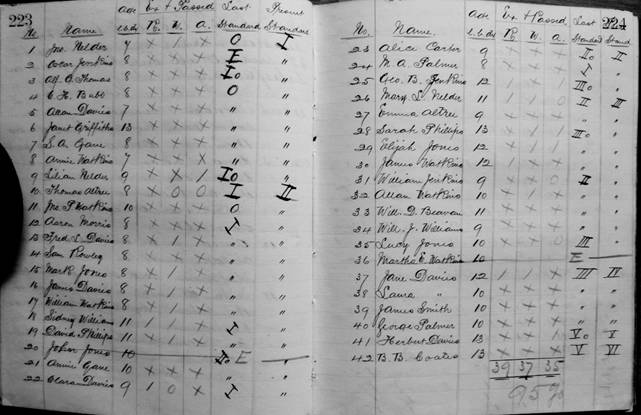 223
No. Name Age l.b.ds Ex'd Passed R. W. A. Last Standard Present Standard
1 Jno. Nelder 7 × 1 × 0 I
2 Oscar Jenkins 8 × × × I "
3 Alf. O. Thomas 8 × × × Io "
4 8 × × × 0 "
5 Davies 7 × × × " "
6 Janet Griffiths 13 × × × " "
7 S. A. Gane 8 × × × " "
8 Annie Watkins 7 × × × " "
9 Lilian Nelder 9 × × 1 Io "
10 Thomas Attree 8 × 0 0 I II
11 Jno. P. Watkins 10 × × × 0 "
12 Aaron Morris 8 × × × I "
13 Fred L. Davies 8 × 1 × " "
14 Sam Rowley 8 × × × " "
15 Mark Jones 8 × 1 " "
16 James Davies 8 × × " "
17 William Watkins 8 × 1 " "
18 Sidney William 11 1 1 × I "
19 David Phillips 11 1 1 × " "
20 John Jones 10 IIo E
21 Annie Gane 10 × × × "
22 Clara Davies 9 1 0 × I "
224
No. Name. Age l.b.ds Ex'd Passed R. W. A. Last Standard Present Standard
23 Alice Carter 9 × × × IIo II
24 M. A. Palmer 8 × × × I "
25 Geo. B. Jenkins 12 × × IIIo "
26 Mary L. Nelder 11 1 II III
27 Emma Attree 9 × × × " "
28 Sarah Phillips 13 × 1 IIIo "
29 Elijah Jones 12 × 1 × " "
30 James Watkins 12 × × × " "
31 William Jenkins 9 × × 0 II "
32 Allan Watkins 10 × 1 × " "
33 Will. D. Beavan 11 × × × " "
34 Will. J. Williams 9 × × " "
35 Lucy Jones 10 × × 0 III "
36 Martha E. Watkins 10 E
37 Jane Davies 12 1 × × III IV
38 Laura " 10 × × × " "
39 James Smith 10 × × × " "
40 George Palmer 10 × × × " "
41 Herbert Davies 13 × 1 × Vo V
42 B. B. Coates 13 × × × V VI
39 37 35
95%